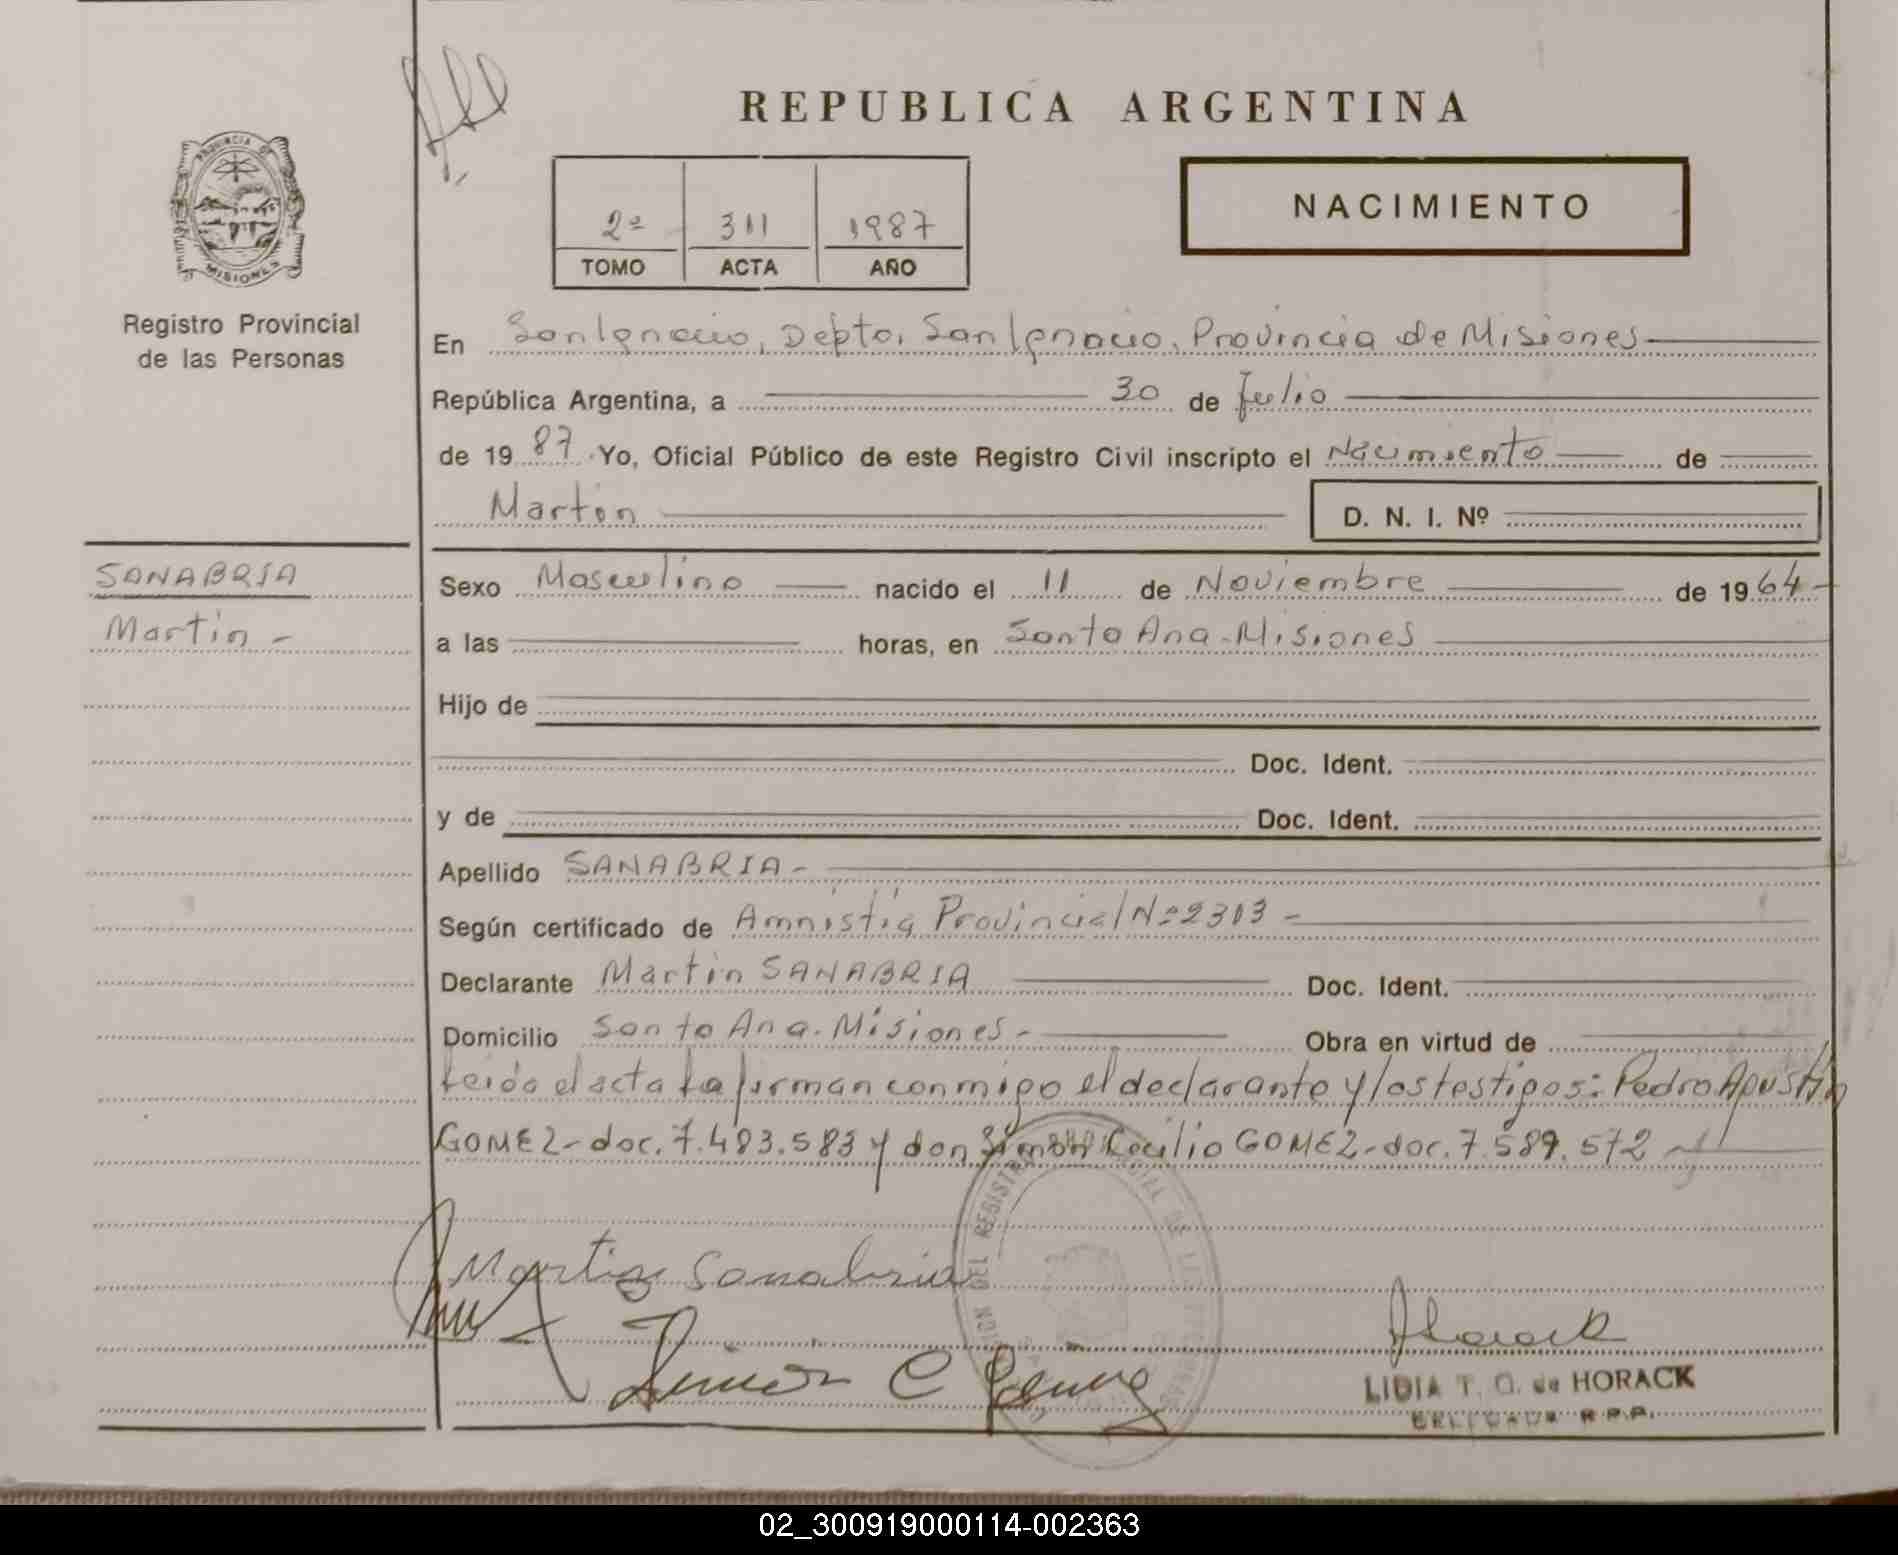 REPUBLICA ARGENTINA
PROVINCIA DE
MISIONES
Registro Provincial
de las Personas
2º 311 1987
TOMO ACTA AÑO
NACIMIENTO
En San Ignacio, Depto. San Ignacio, Provincia de Misiones
República Argentina, a 30 de Julio
de 19 87 Yo, Oficial Público de este Registro Civil inscripto el Nacimiento de
Martin D. N. I. Nº
SANABRIA
Martin -
Sexo Masculino nacido el 11 de Noviembre de 19 64 -
a las horas, en Santa Ana - Misiones
Hijo de
Doc. Ident.
y de Doc. Ident.
Apellido SANABRIA -
Según certificado de Amnistia Provincial Nº 2313 -
Declarante Martin SANABRIA Doc. Ident.
Domicilio Santa Ana - Misiones - Obra en virtud de
Leida el acta la firman conmigo el declarante y los testigos: Pedro Agustin
GOMEZ - doc. 7.483.583 y don Simon Cecilio GOMEZ - doc. 7.589.572
Martin Sanabria
Simon C Gomez
Horack
LIDIA T. G. de HORACK
DELEGADA R.P.P.
02_300919000114-002363